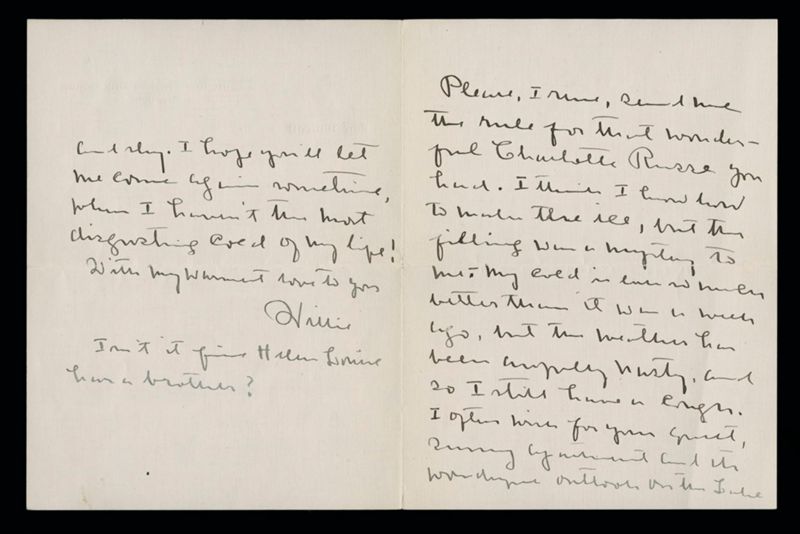 Please, Irene, send me
the rule for that wonder-
ful Charlotte Russe you
had. I think I know how
to make the ice, but the
filling was a mystery to
me. My cold is ever so much
better than it was a week
ago, but the weather has
been awfully nasty, and
so I still have a cough.
I often wish for your quiet,
sunny apartment and its
wonderful outlook on the Lake
and sky. I hope you'll let
me come again sometime,
when I haven't the most
disgusting cold of my life!
With my warmest love to you
Isn't it fine Helen Louise
has a brother?